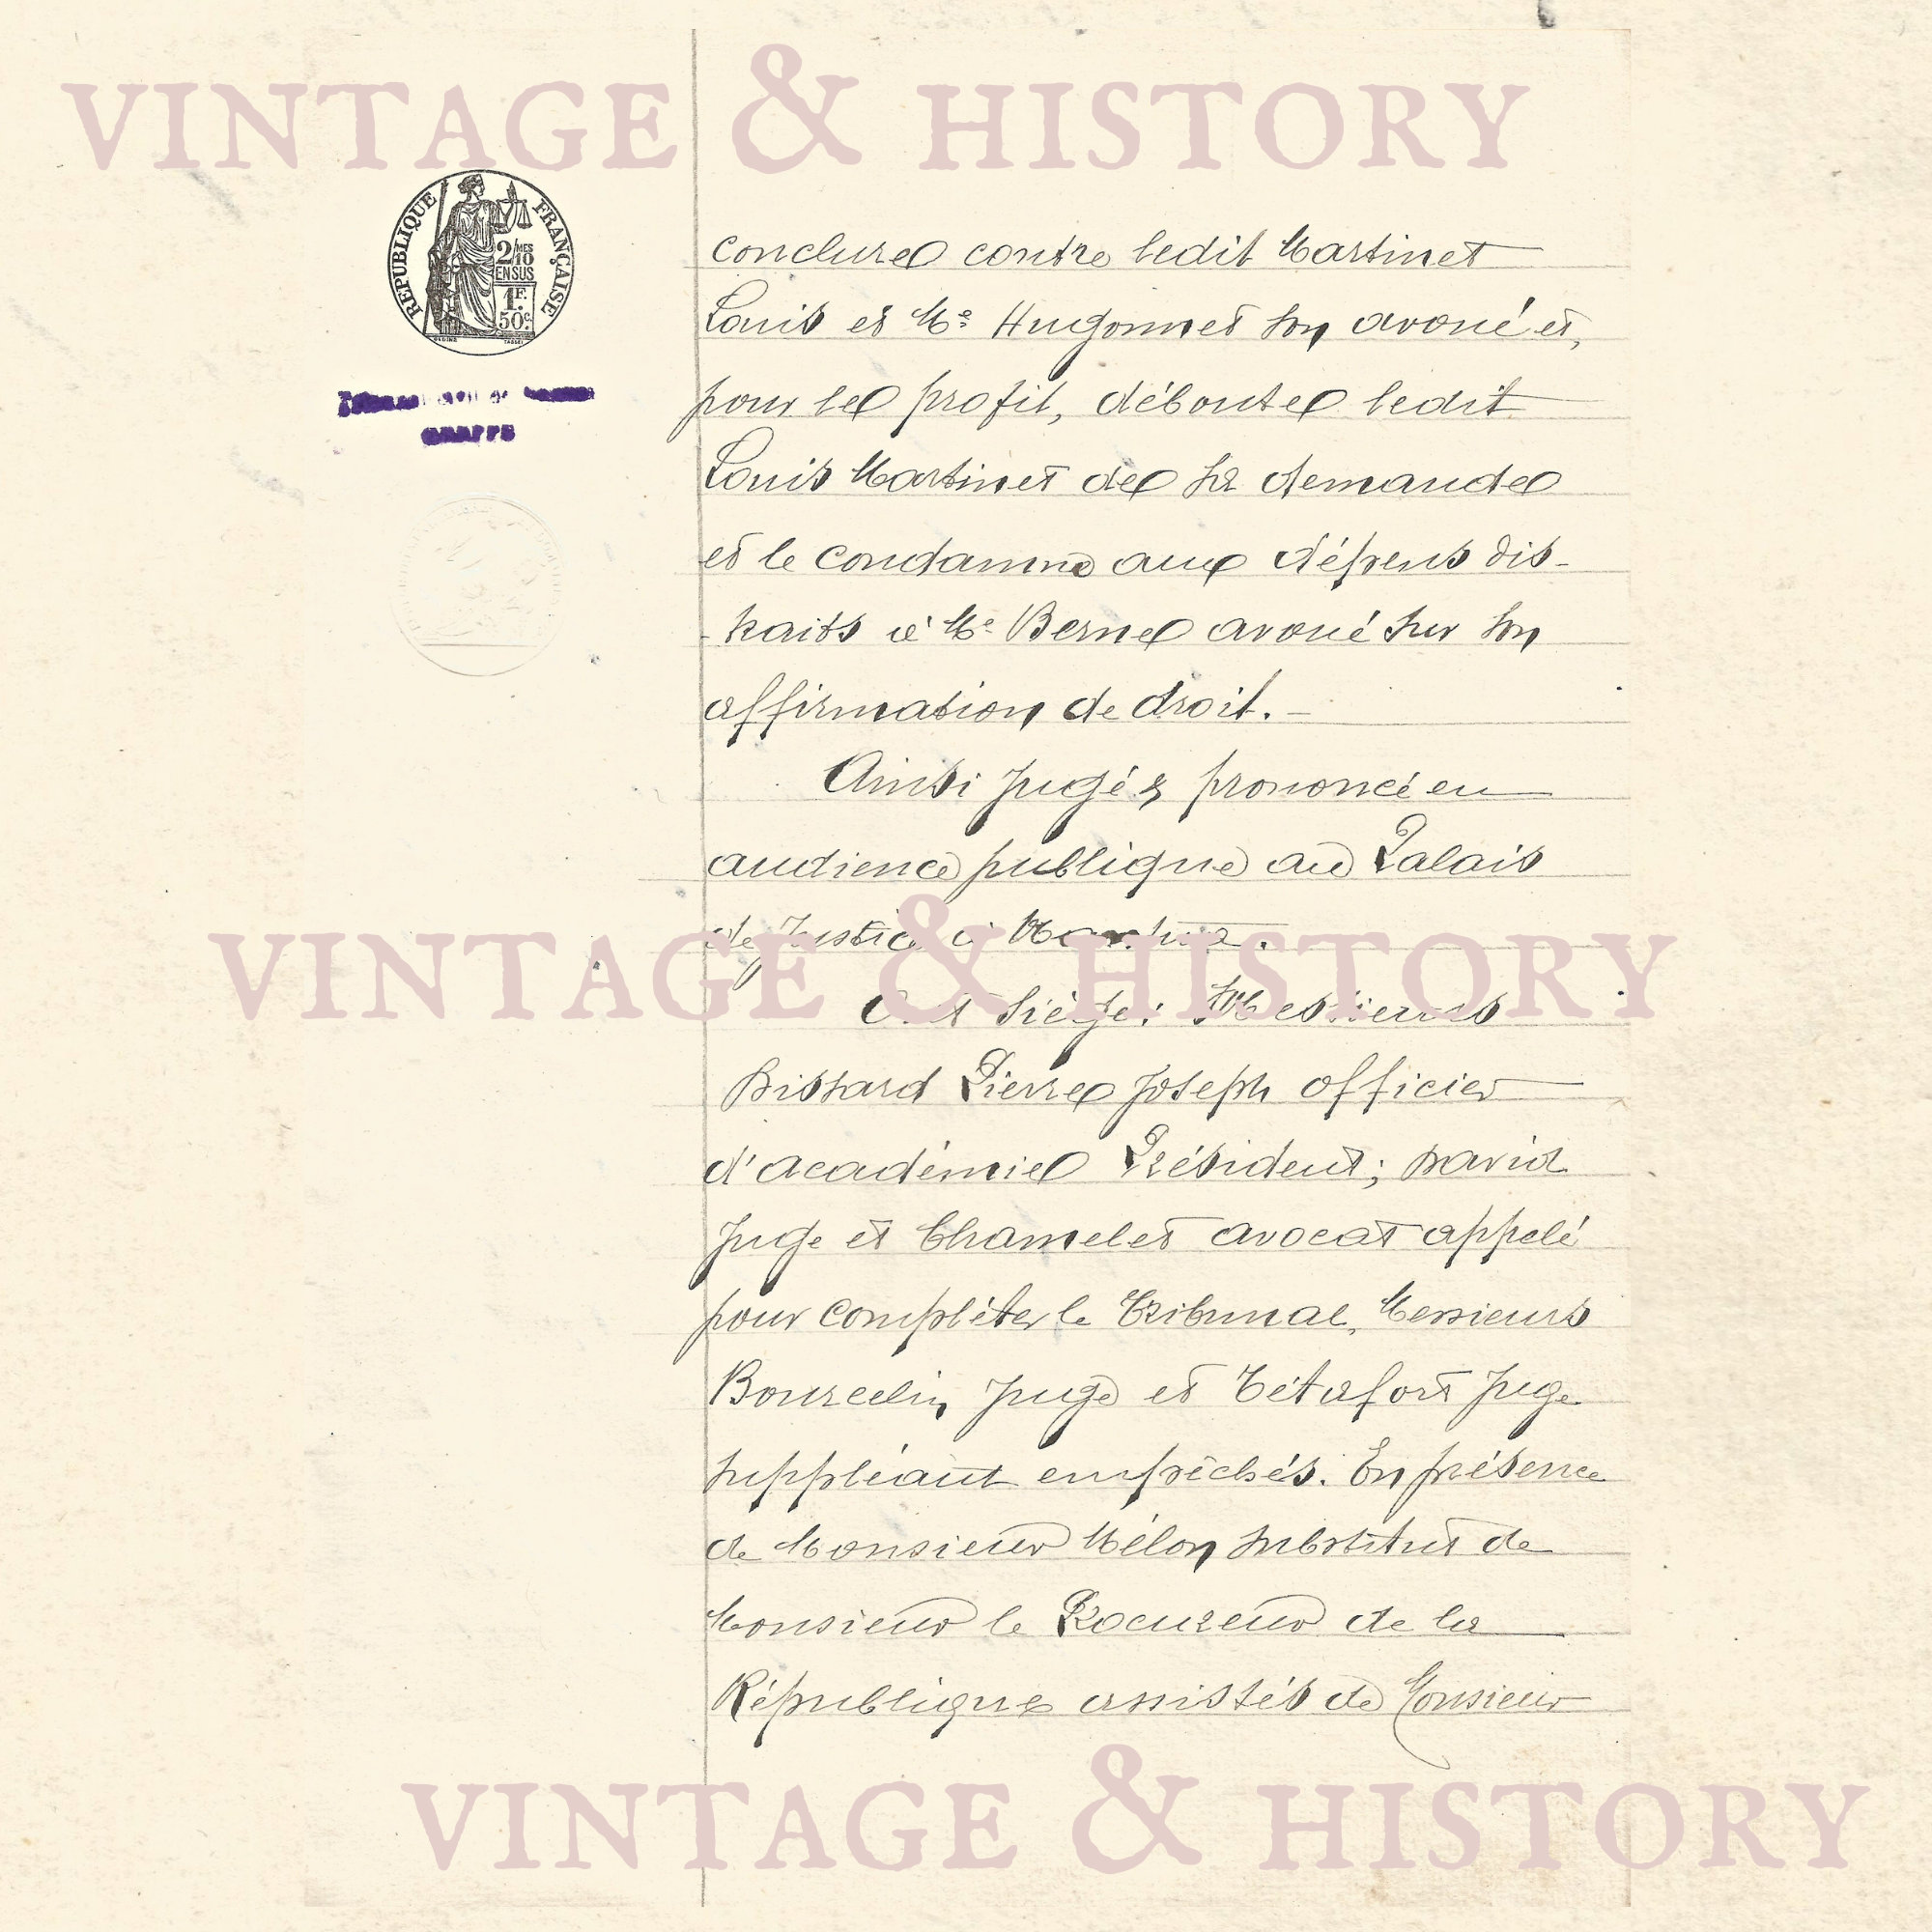 VINTAGE & HISTORY
RÉPUBLIQUE FRANÇAISE
2/10 MES
EN SUS
1F.
50c.
GREFFE
conclure contre ledit Martinet
Louis et Me Hugonnet son avoué et,
pour le profit, déboute ledit
Louis Martinet de sa demande
et le condamne aux dépens dis-
-traits à Me Berne avoué sur son
affirmation de droit.-
Ainsi jugé & prononcé en
audience publique au Palais
de Justice à Nantua.
VINTAGE & HISTORY
Ont Siégé: MMessieurs
Pierre Joseph officier
d'académie Président; David
Juge et Chamelet avocat appelé
pour compléter le Tribunal, Messieurs
Bourcelin, Juge et Tétafort Juge
suppléant empêchés. En présence
de Monsieur Mélon Substitut de
Monsieur le Procureur de la
République assistés de Monsieur
VINTAGE & HISTORY